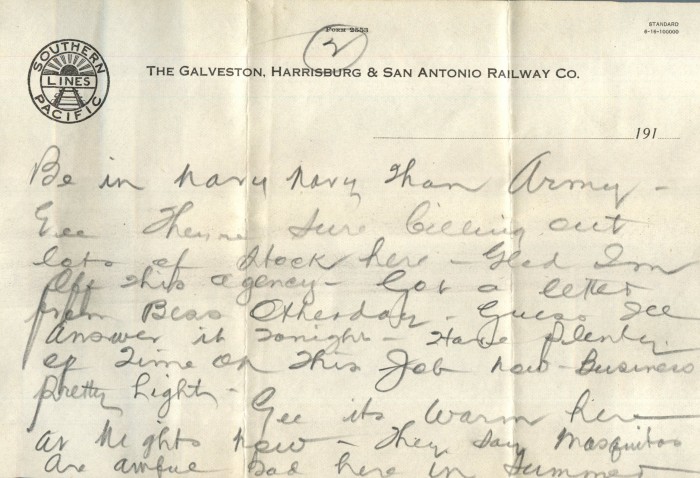 FORM 2553
STANDARD
6-16-100000
2
SOUTHERN PACIFIC LINES
THE GALVESTON, HARRISBURG & SAN ANTONIO RAILWAY CO.
191
Be in navy navy than Army -
Gee They're sure billing out
lots of stock here - Glad Im
off this agency - Got a letter
from Bess Otherday - Guess Ill
answer it tonight - Have plenty
of time on this Job now - Business
pretty light - Gee its warm here
at nights now - They say mosquitos
are awful bad here in summer